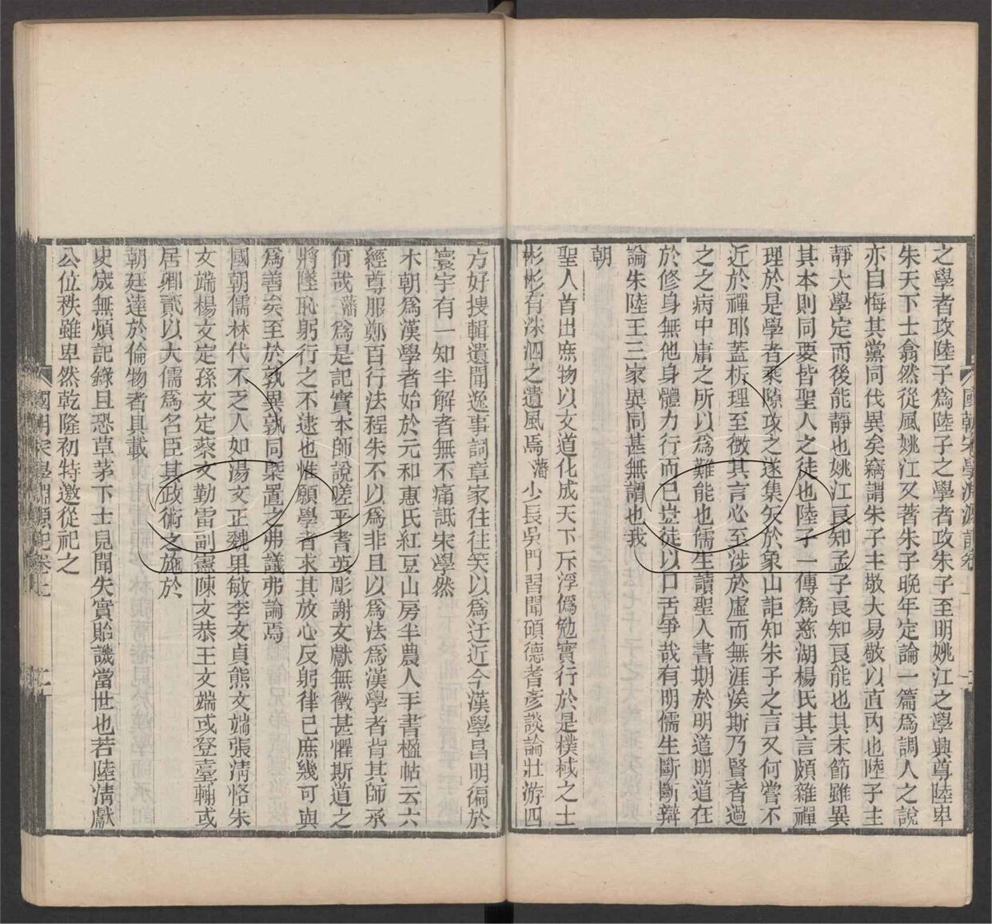 之學者攻陸子爲陸子之學者攻朱子至明姚江之學興尊陸卑
朱天下士翕然從風姚江又著朱子晚年定論一篇爲調人之說
亦自悔其黨同伐異矣竊謂朱子主敬大易敬以直內也陸子主
靜大學定而後能靜也姚江良知孟子良知良能也其末節雖異
其本則同要皆聖人之徒也陸子一傳爲慈湖楊氏其言頗雜禪
理於是學者乘隙攻之遂集矢於象山詎知朱子之言又何嘗不
近於禪耶蓋析理至微其言心至涉於虛而無涯涘斯乃賢者過
之之病中庸之所以爲難能也儒生讀聖人書期於明道明道在
於修身無他身體力行而已豈徒以口舌爭哉有明儒生斷斷辯
論朱陸王三家異同甚無謂也我
朝
聖人首出庶物以文道化成天下斥浮僞勉實行於是樸棫之士
彬彬有洙泗之遺風焉藩少長吳門習聞碩德耆彥談論壯游四
國朝宋學淵源記卷上
方好搜輯遺聞逸事詞章家往往笑以爲迂近今漢學昌明徧於
寰宇有一知半解者無不痛詆宋學然
本朝爲漢學者始於元和惠氏紅豆山房半農人手書楹帖云六
經尊服鄭百行法程朱不以爲非且以爲法爲漢學者背其師承
何哉藩爲是記實本師說嗟乎耆英彫謝文獻無徵甚懼斯道之
將墜恥躬行之不逮也惟願學者求其放心反躬律己庶幾可與
爲善矣至於孰異孰同槩置之弗議弗論焉
國朝儒林代不乏人如湯文正魏果敏李文貞熊文端張清恪朱
文端楊文定孫文定蔡文勤雷副憲陳文恭王文端或登臺輔或
居卿貳以大儒爲名臣其政術之施於
朝廷達於倫物者具載
史宬無煩記錄且恐草茅下士見聞失實貽譏當世也若陸清獻
公位秩雖卑然乾隆初特邀從祀之
國朝宋學淵源記卷上